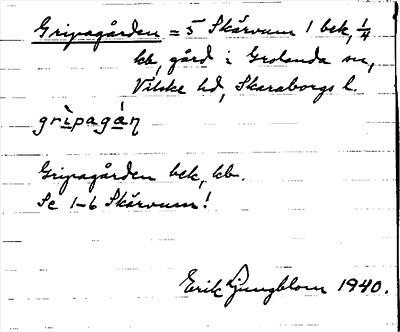 Gripagården = 5 Skårvum 1 bek, 1/4
kb, gård i Grolanda sn,
Vilske hd, Skaraborgs l.
grìpagàn
Gripagården bek, kb.
Se 1-6 Skårvum!
Erik Ljungblom 1940.